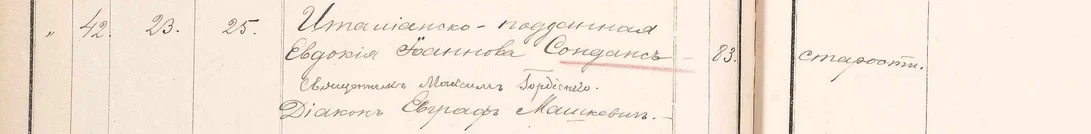 „ 42. 23. 25. Италіанско-подданная
Евдокія Іоаннова Сондансъ - 83. старости.
Священникъ Максимъ Гордіенко.
Діаконъ Евграфъ Машкевич.